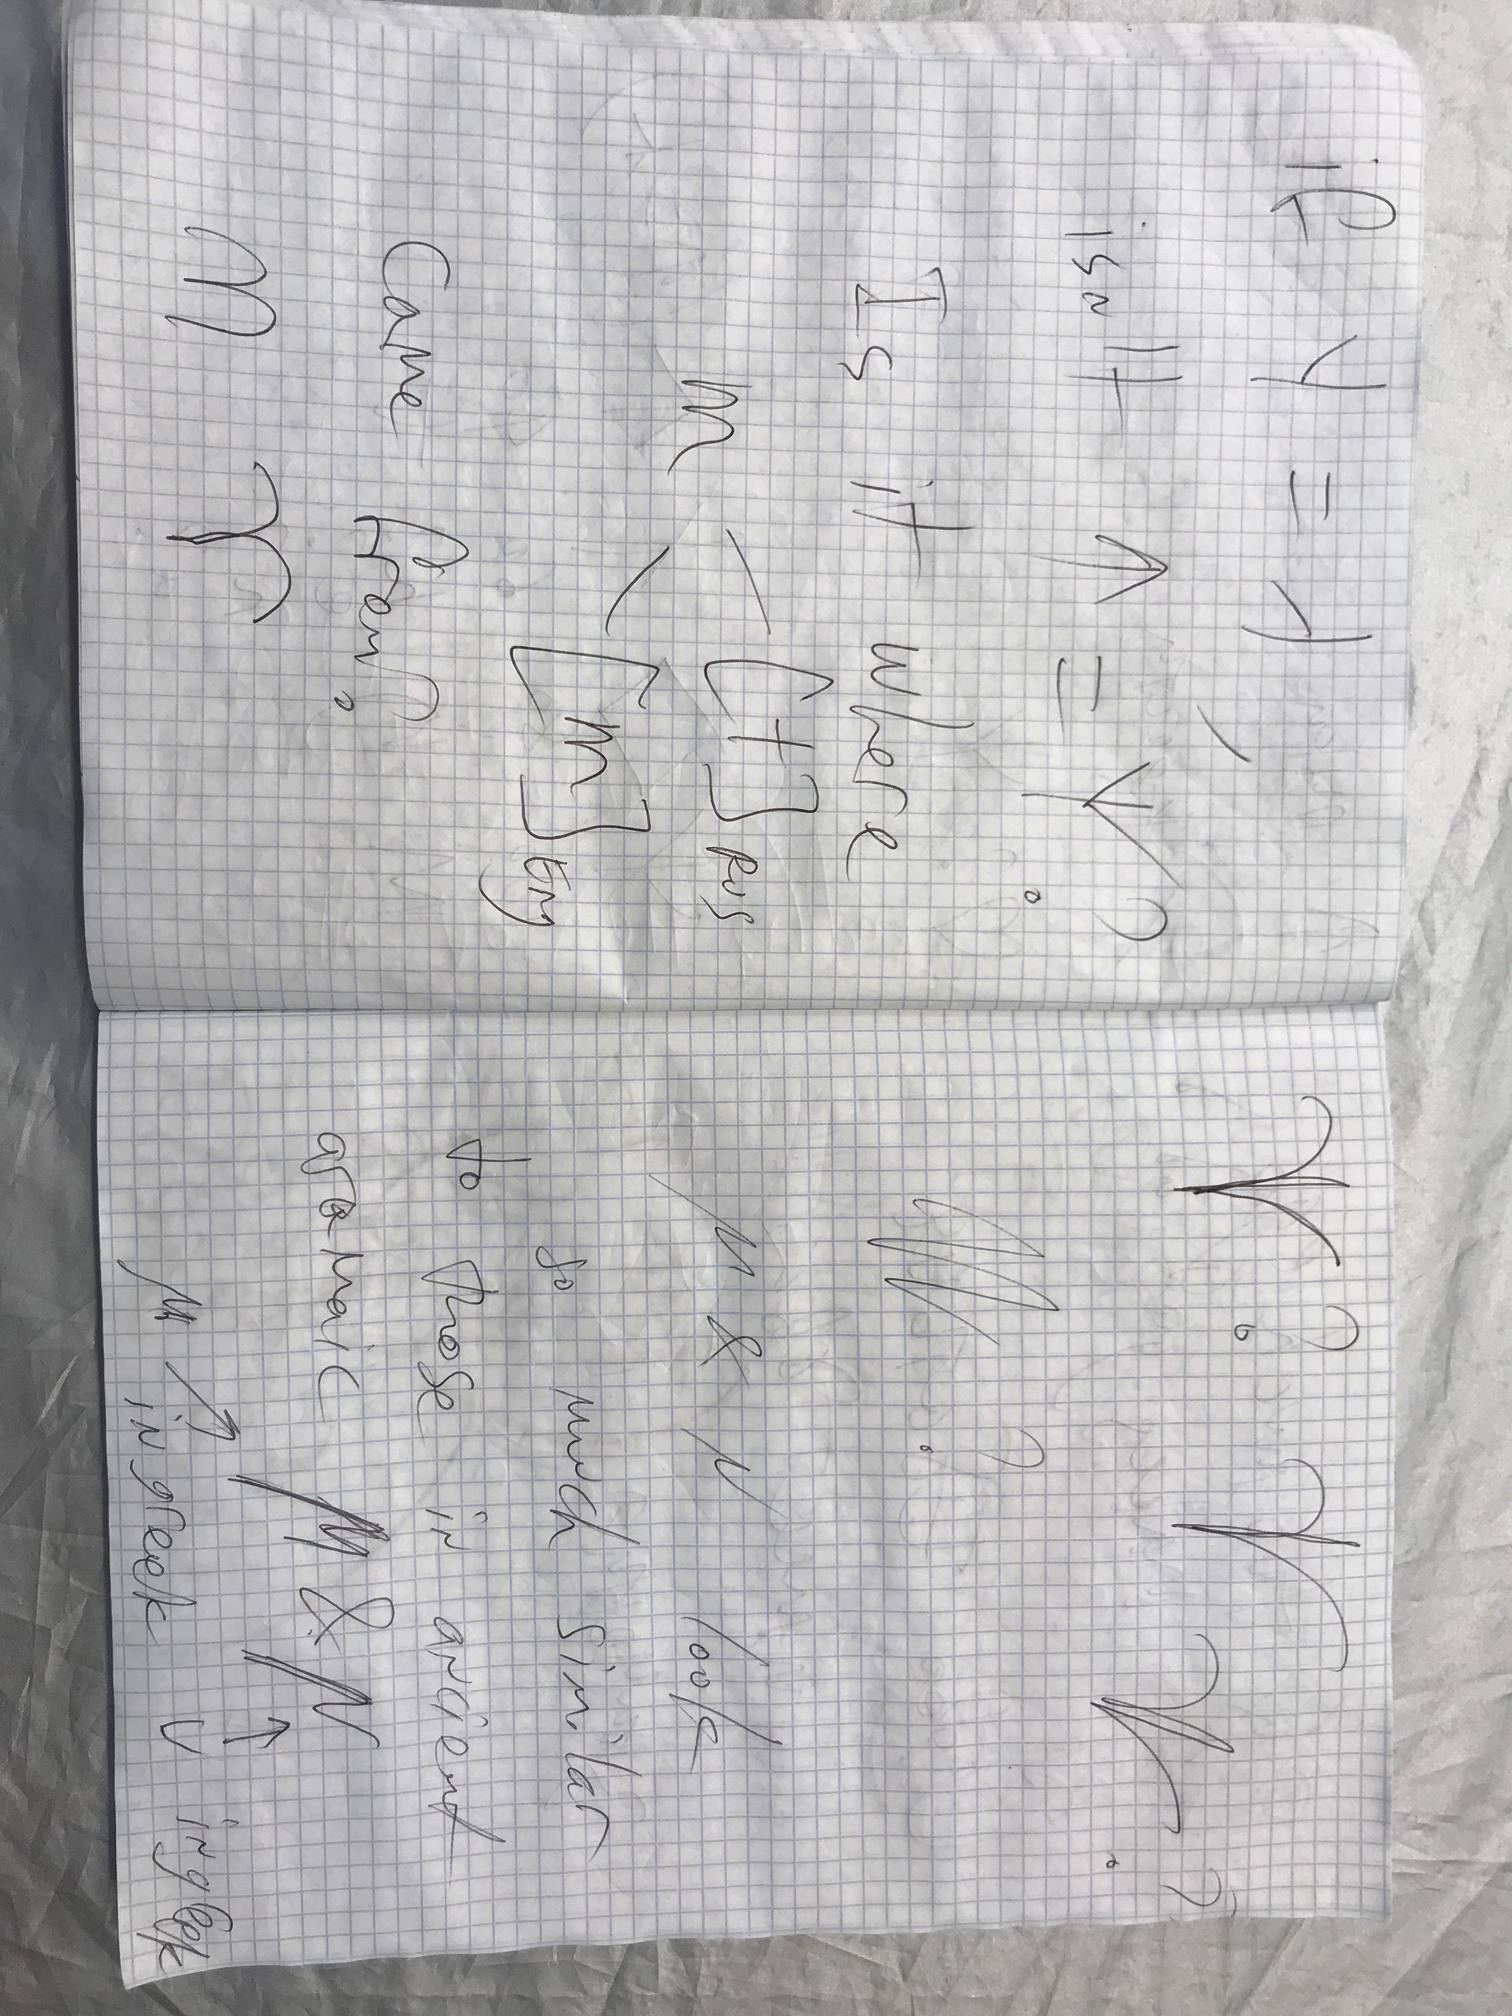 if
isn't ↓ =
Is it where
m [t] Rus
[m] Eng
Came from?
m
?
?
?
M & N look
so much similar
to those in ancient
aramaic M & N
μ ↗ ↑
in greek ν in greek